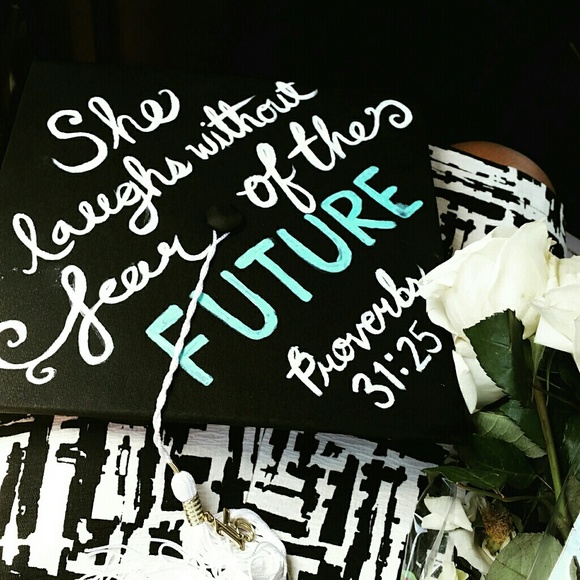 She
laughs without
fear of the
FUTURE
Proverbs
31:25
15